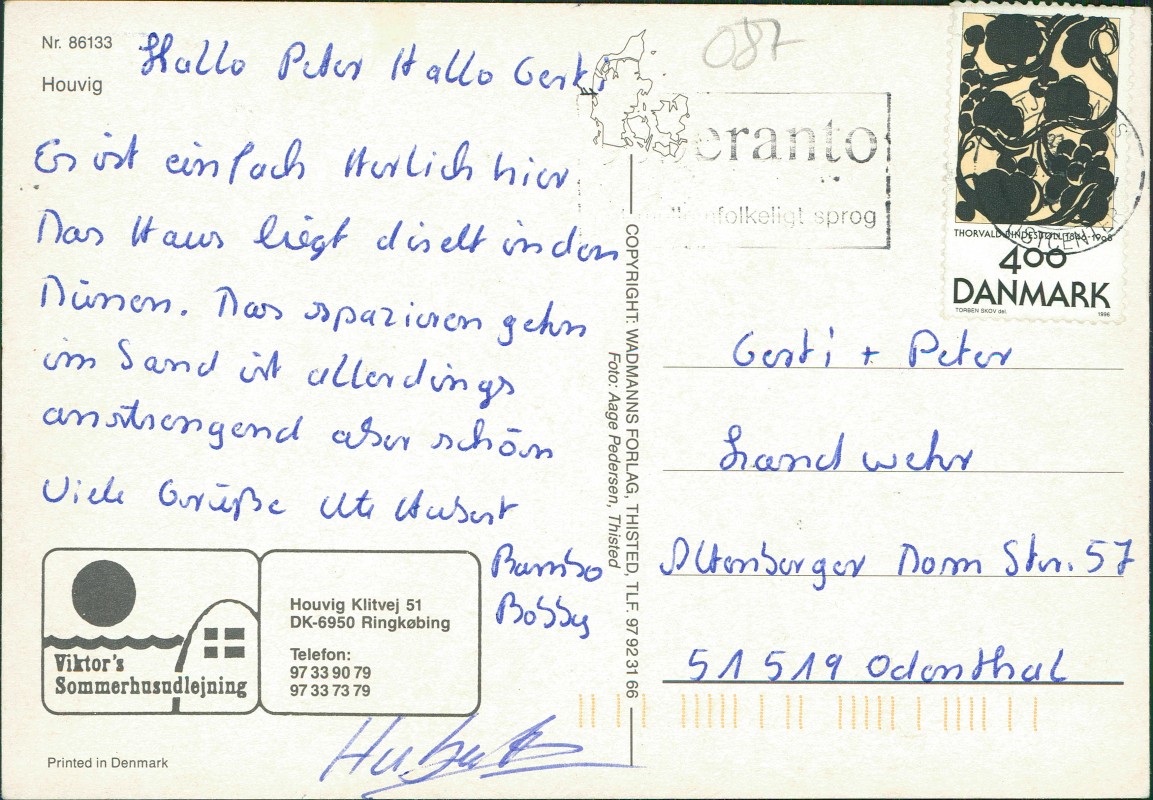 Nr. 86133
Houvig
087
Hallo Peter Hallo Gerti
Es ist einfach Herlich hier
Das Haus liegt direkt in den
Dünen. Das spazieren gehn
im Sand ist allerdings
anstrengend aber schön
Viele Grüße Ute Hubert
Bambo
Bobby
Viktor's
Sommerhusudlejning
Houvig Klitvej 51
DK-6950 Ringkøbing
Telefon:
97 33 90 79
97 33 73 79
Hubert
Printed in Denmark
COPYRIGHT: WADMANNS FORLAG, THISTED, TLF. 97 92 31 66
Foto: Aage Pedersen, Thisted
eranto
folkeligt sprog
THORVALD BINDESBØLL 1846-1908
400
DANMARK
TORBEN SKOV del. 1996
Gerti + Peter
Landwehr
Altenberger Dom Str. 57
51519 Odenthal